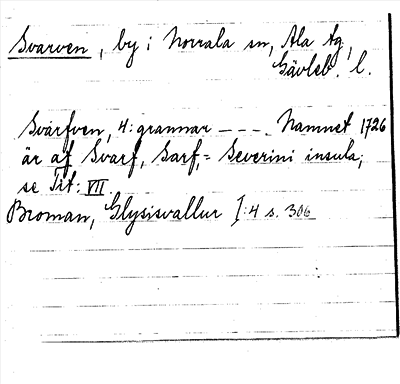 Svarven, by i Norrala sn, Ala tg,
Gävleb. l.
Svarfven, 4: grannar ---. Namnet 1726
är af Svarf, Sarf, = Severini insula;
se Tit: VII.
Broman, Glysisvallur I: 4 s. 306